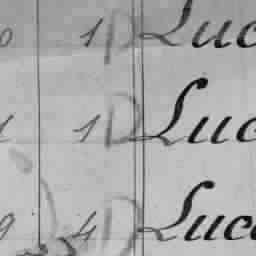 0 1 D Luc
1 1 D Luc
9 4 D Luc